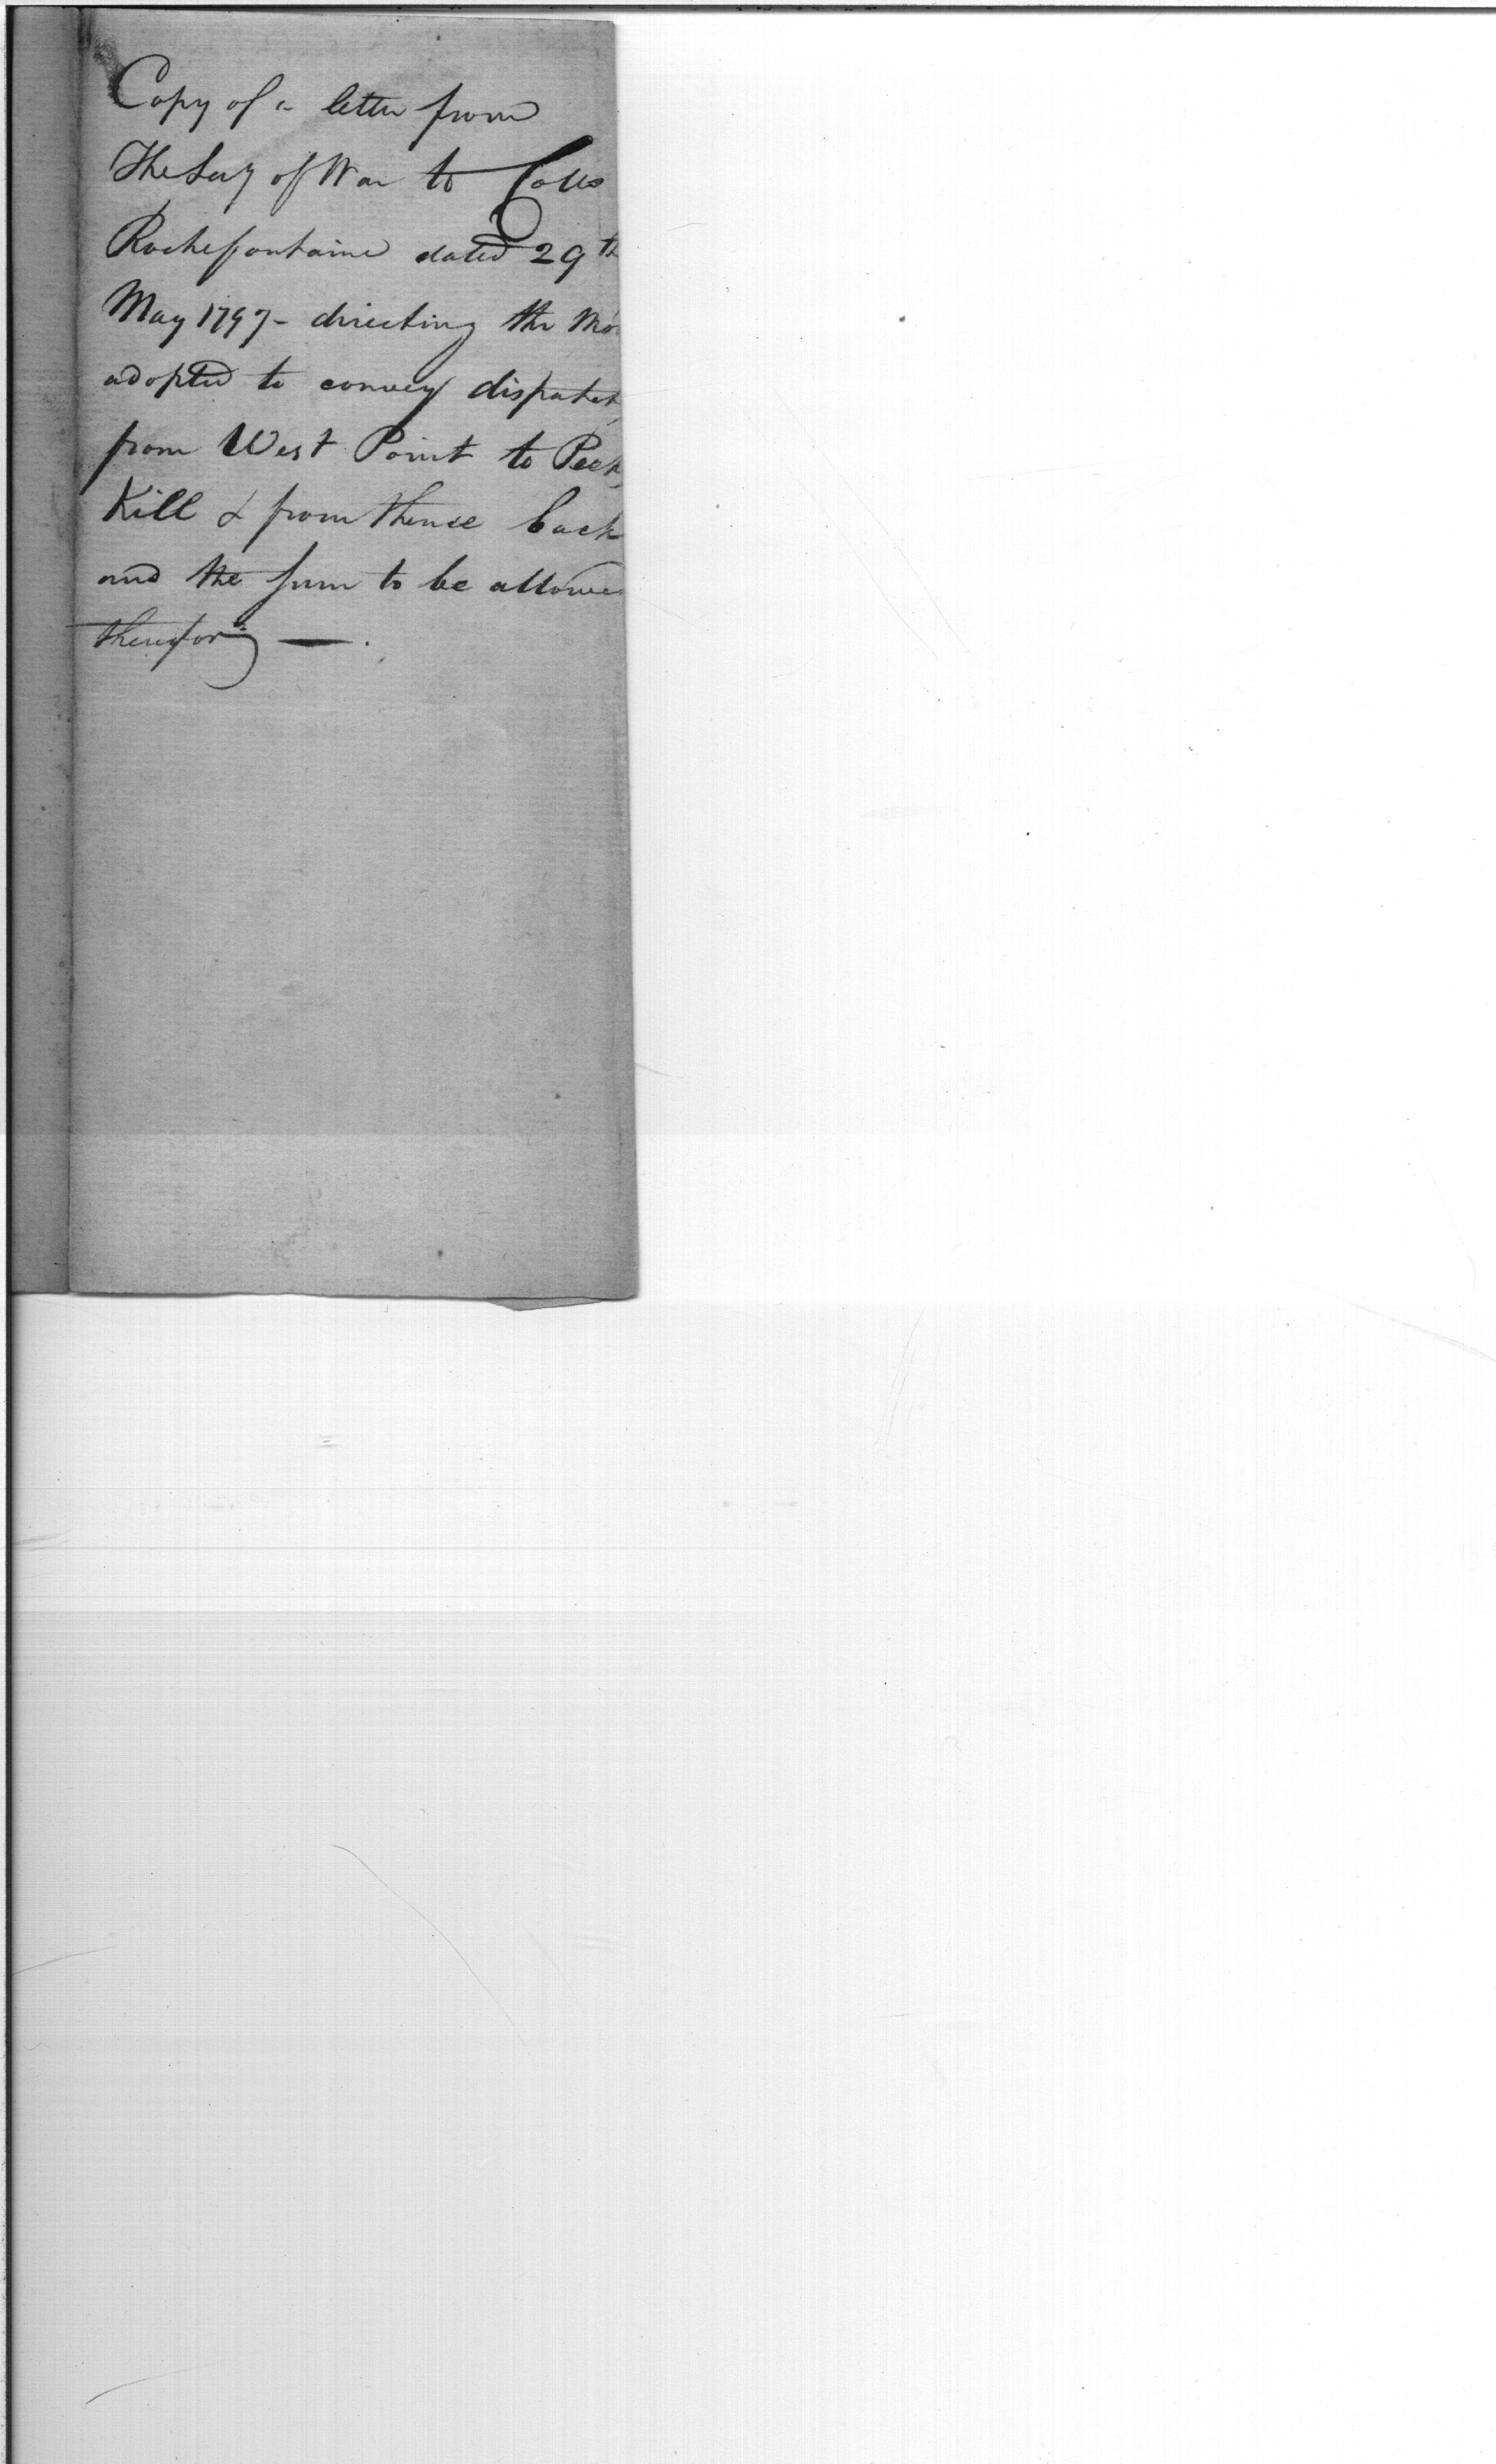 Copy of a letter from
The Secy of War to Collo
Rochefontaine dated 29th
May 1797 - directing the Mo
adopted to convey dispatch
from West Point to Peeks
Kill & from thence back
and the sum to be allowed
therefor —.